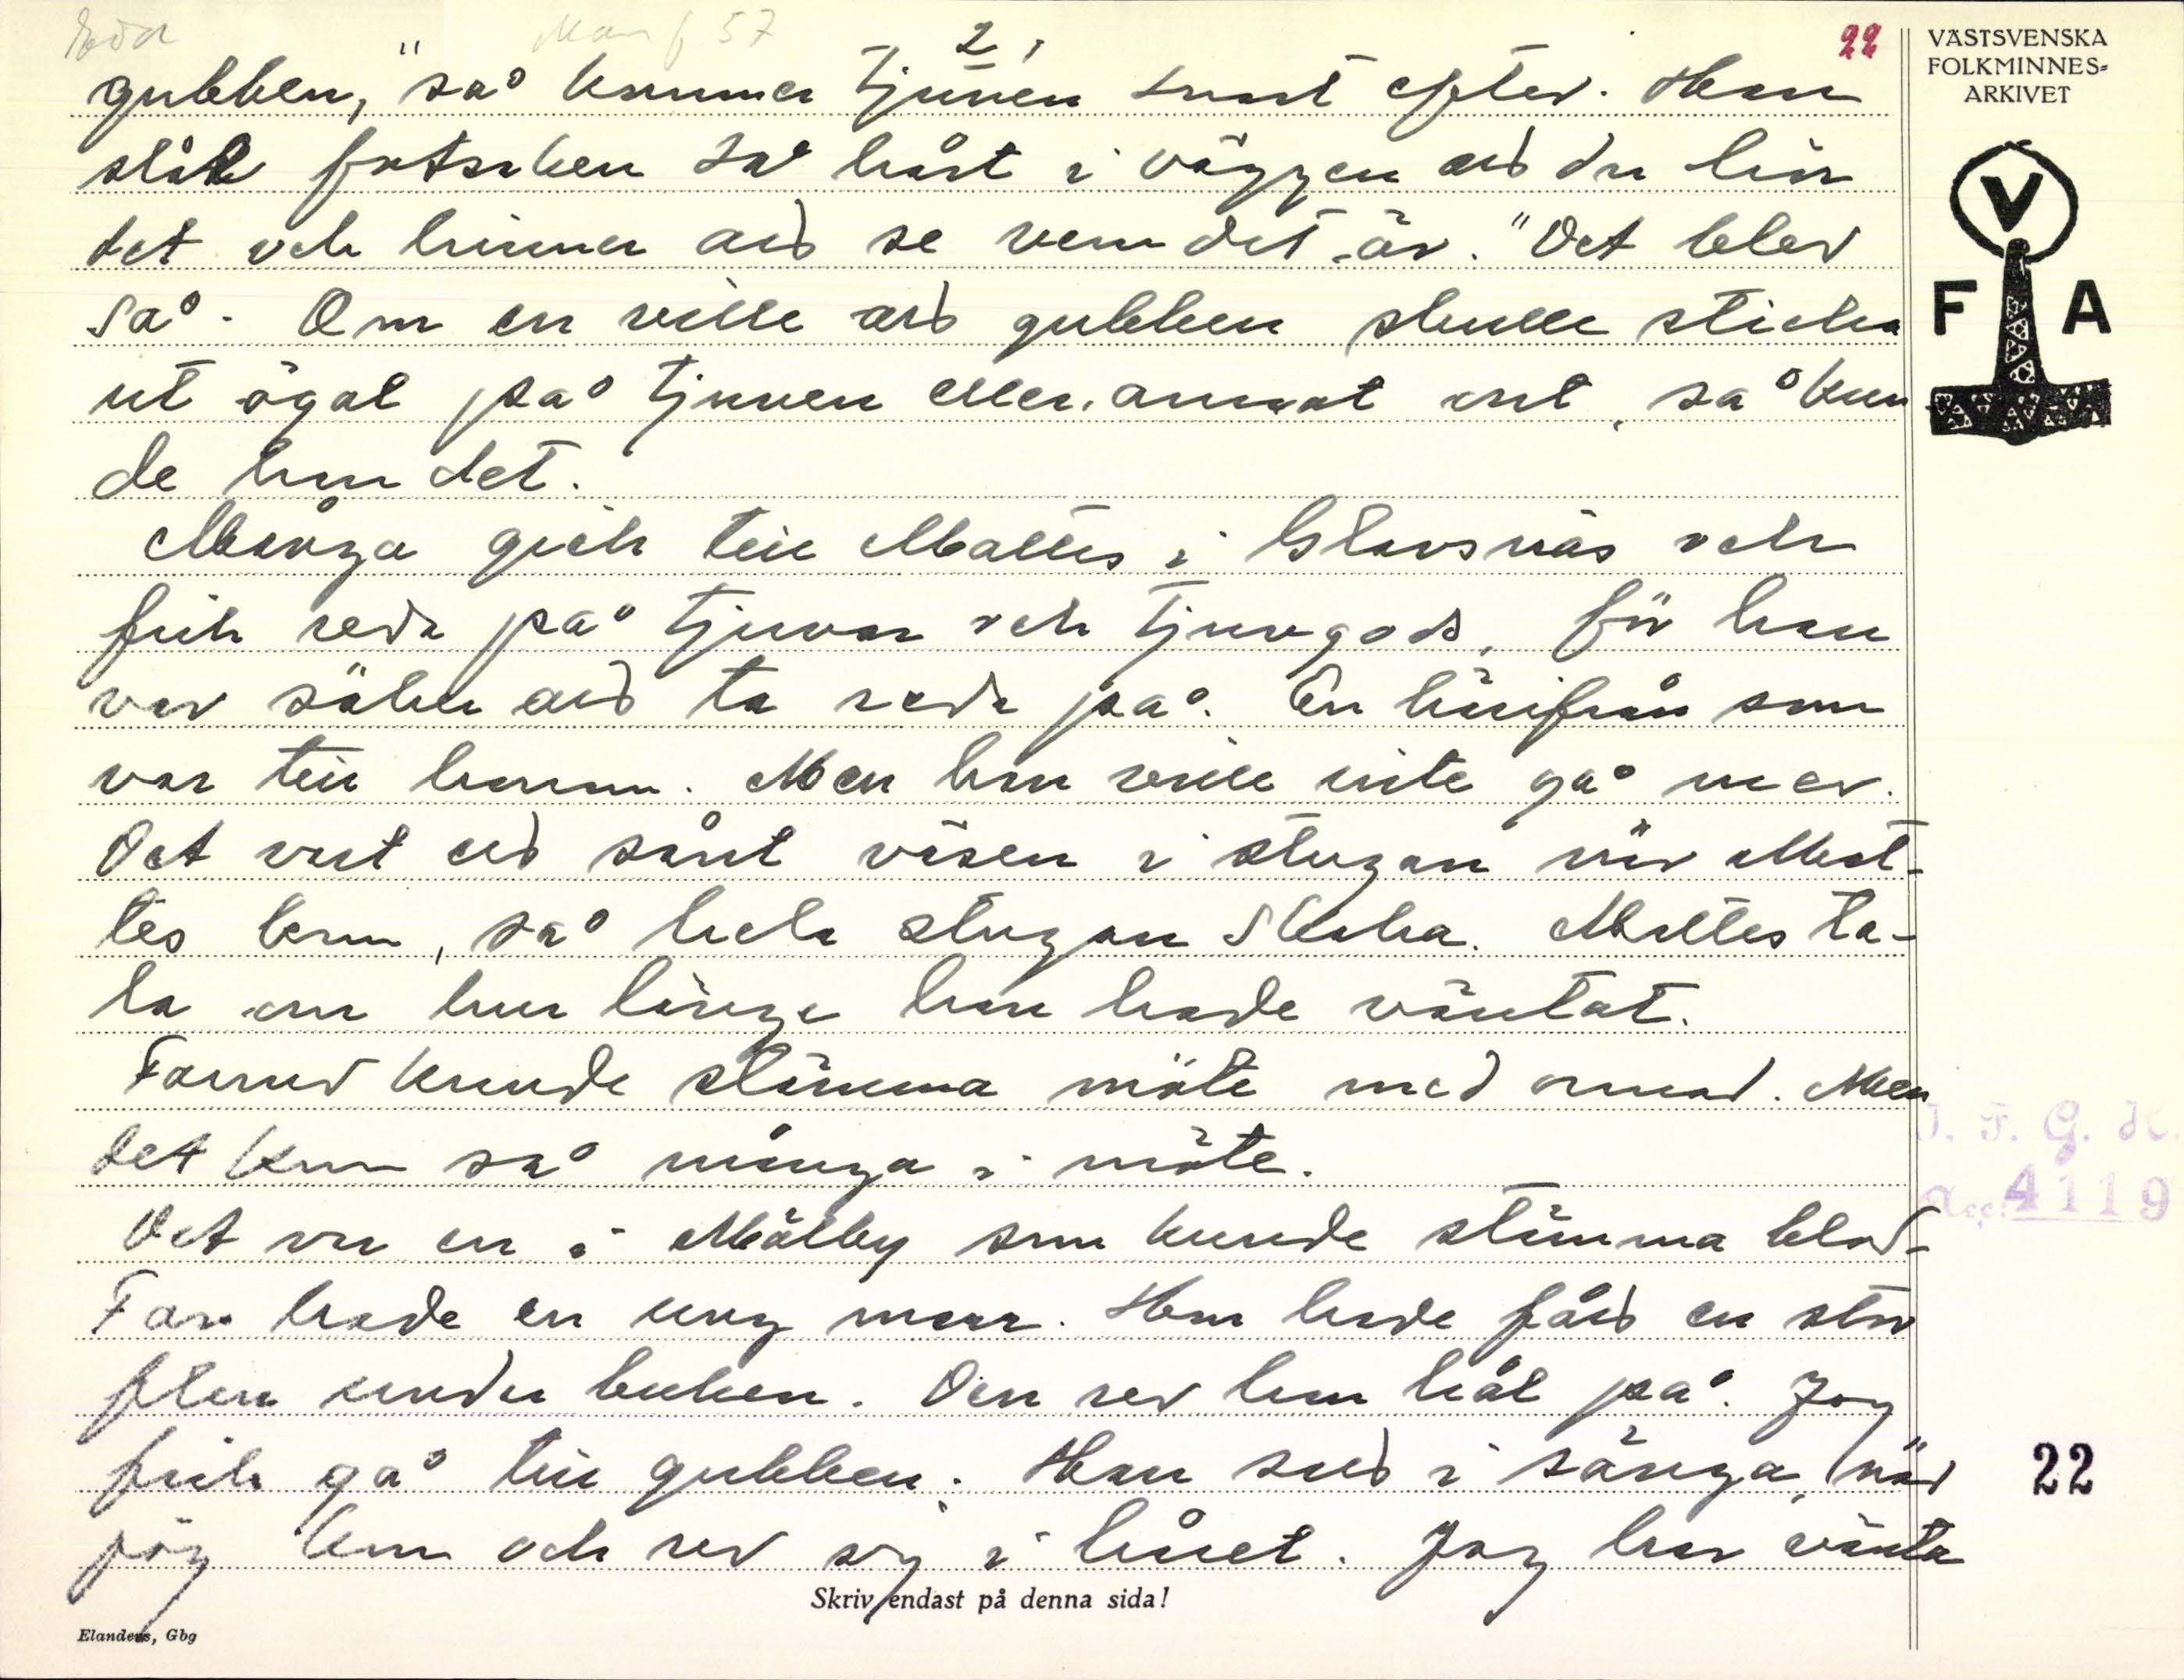 2,
22
VÄSTSVENSKA
FOLKMINNES-
ARKIVET
V
F A
gubben, "så kommer tjuven snart efter. Han
slår fotsoken så hårt i väggen att du hör
det och hinner att se vem det är." Det blev
så. Om en ville att gubben skulle sticka
ut ögat på tjuven eller annat ont, så kun
de han det.
Många gick till Mattes i Glavsnäs och
fick reda på tjuvar och tjuvgods, för han
var säker att ta reda på. En härifrån som
var till honom. Men han ville inte gå mer.
Det vart ett sånt väsen i stugan när Mat-
tes kom, så hela stugan skaka. Mattes ta-
la om hur länge han hade väntat.
Farmor kunde stämma möte med ormar. Men
det kom så många i möte.
Det var en i Mälby som kunde stämma blod.
Far hade en ung marr. Hon hade fått en stor
flen under buken. Den rev hon hål på. Jag
fick gå till gubben. Han satt i sänga, när
jag kom och rev sig i håret. Jag har vänta
I. F. G. H.
Acc. 4119
22
Skriv endast på denna sida!
Elanders, Gbg